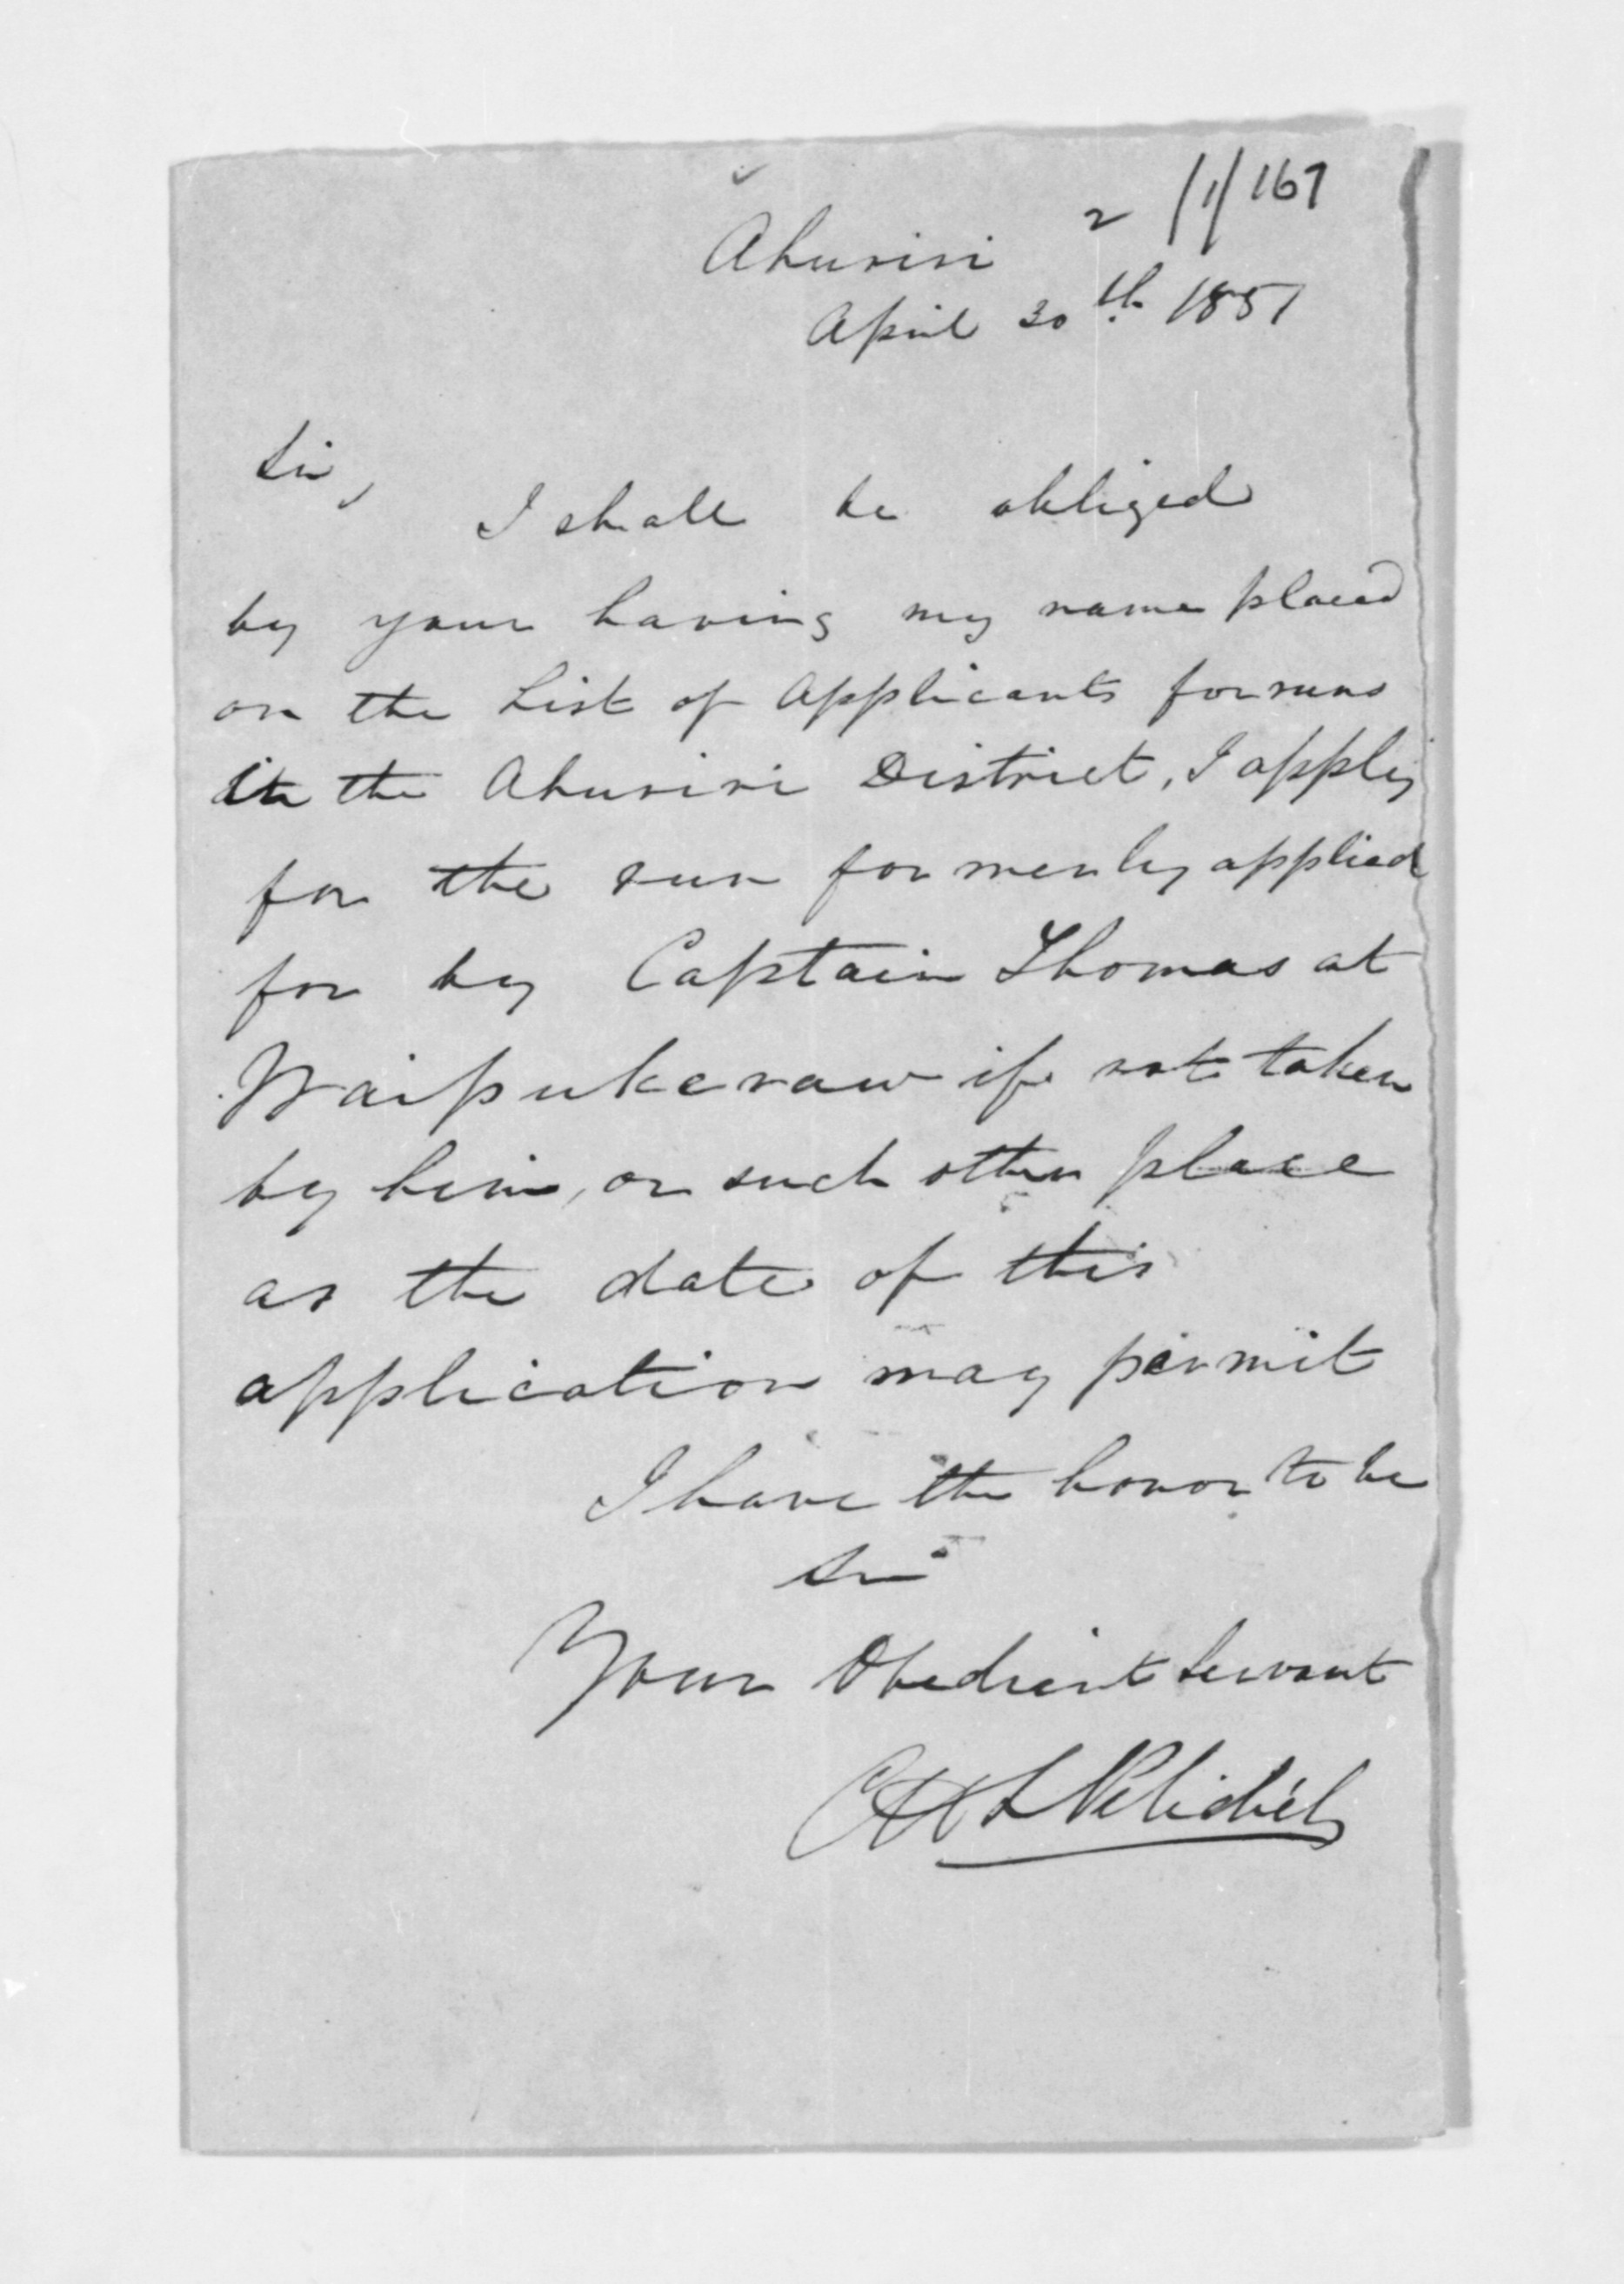 2 /1/167
Ahuriri
April 30th 1851
Sir,
I shall be obliged
by your having my name placed
on the List of Applicants for runs
in the Ahuriri District, I apply
for the run formerly applied
for by Captain Thomas at
Waipukeraw if not taken
by him, or such other place
as the date of this
application may permit
I have the honor to be
Sir
Your Obedient Servant